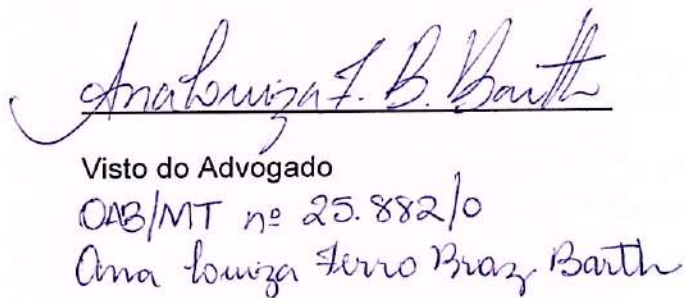 Ana Louiza F. B. Barth
Visto do Advogado
OAB/MT nº 25.882/O
Ana Louiza Ferro Braz Barth